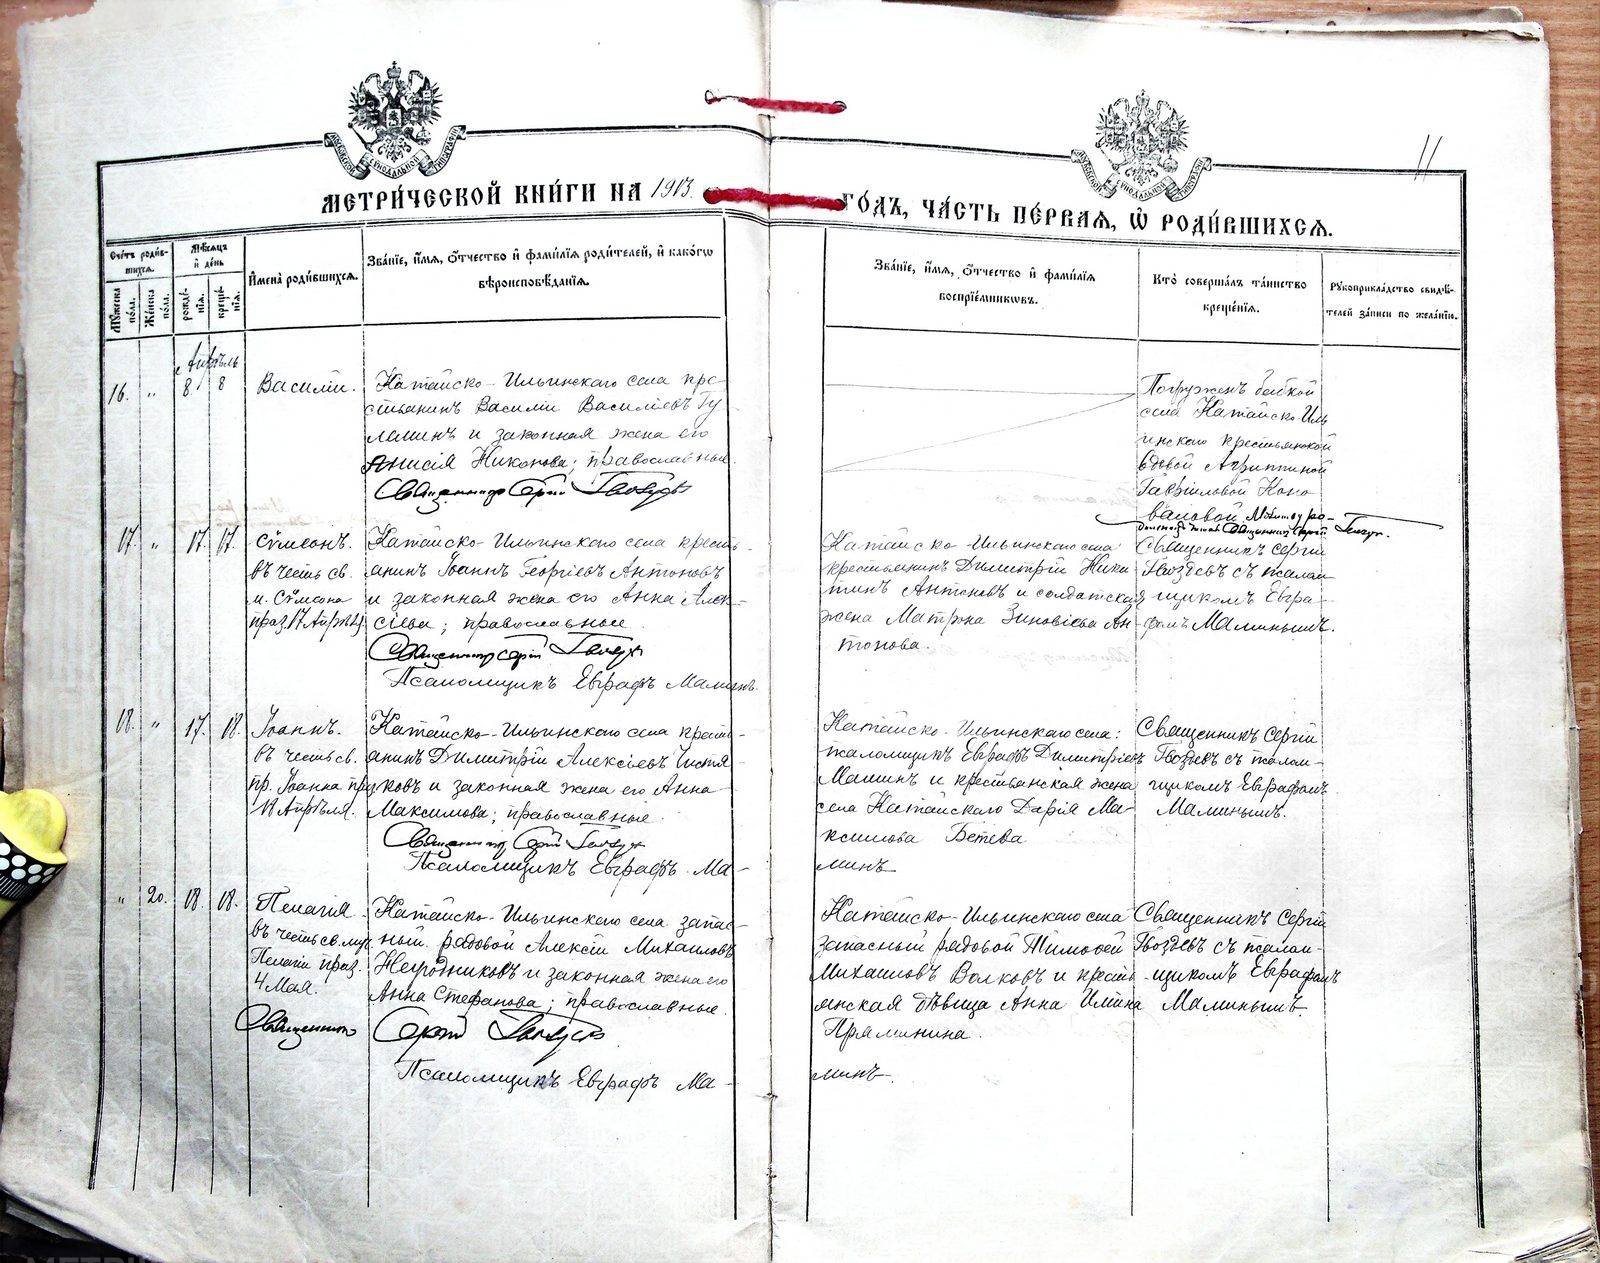 МЕТРИ́ЧЕСКОЙ КНИ́ГИ НА 1913.
ГО́ДЪ, ЧА́СТЬ ПЕ́РВАЯ, Ѡ҆ РОДИ́ВШИХСЯ.
11
Сче́тъ роди́в-
шихся.
Мѣ́сяцъ
и҆ де́нь
И҆мена̀ роди́вшихся.
Зва́нїе, и҆́мя, ѻ҆́тчество и҆ фами́лїя роди́телей, и҆ како́гѡ
вѣроисповѣ́данїя.
Зва́нїе, и҆́мя, ѻ҆́тчество и҆ фами́лїя
воспрїе́мникѡвъ.
Кто̀ соверша́лъ та́инство
креще́нїя.
Рꙋкоприкла́дство свидѣ́-
телей за́писи по жела́нїю.
Мꙋ́жеска
по́ла.
Же́нска
по́ла.
рожде́-
нїя.
креще́-
нїя.
Апрѣль
16. " 8. 8
Василій.
Катайско-Ильинскаго села кре-
стьянинъ Василій Василіевъ Гу
лминъ и законная жена его
Анисія Никонова; православные
Священникъ Сергій Гвоздевъ
Погруженъ бабкой
села Катайско-Иль
инскаго крестьянской
вдовой Агриппиной
Гавріиловой Коно
валовой. Молитву ро-
Священникъ Сергій Гвоздевъ
17. " 17. 17.
Сѵмеонъ.
въ честь св.
м. Сѵмеона
праз. 17 Апрѣля
Катайско-Ильинскаго села кресть-
янинъ Іоаннъ Георгіевъ Антоновъ
и законная жена его Анна Алек-
сіева; православные.
Священникъ Сергій Гвоздевъ
Псаломщикъ Евграфъ Маминъ.
Катайско-Ильинскаго села
крестьянинъ Димитрій Ники
тинъ Антоновъ и солдатская
жена Матрона Зиновіева Ан-
тонова.
Священникъ Сергій
Гвоздевъ съ псалом
щикомъ Евгра-
фомъ Маминымъ.
18. " 17. 18.
Іоаннъ.
въ честь св.
пр. Іоанна праз
18 Апрѣля.
Катайско-Ильинскаго села кресть-
янинъ Димитрій Алексіевъ Чистя
ковъ и законная жена его Анна
Максимова; православные.
Священникъ Сергій Гвоздевъ
Псаломщикъ Евграфъ Ма-
Катайско-Ильинскаго села:
псаломщикъ Евграфъ Димитріевъ
Маминъ и крестьянская жена
села Катайскаго Дарія Ма-
ксимова Бетева
минъ
Священникъ Сергій
Гвоздевъ съ псалом-
щикомъ Евграфомъ
Маминымъ.
" 20. 18. 18.
Пелагія
въ честь св. муч.
Пелагіи праз.
4 Мая.
Катайско-Ильинскаго села запас-
ный рядовой Алексій Михаиловъ
Негодниковъ и законная жена его
Анна Стефанова; православные.
Священникъ Сергій Гвоздевъ
Псаломщикъ Евграфъ Ма-
Катайско-Ильинскаго села
запасный рядовой Тимоѳей
Михаиловъ Волковъ и кресть-
янская дѣвица Анна Ильина
Пряминина.
минъ.
Священникъ Сергій
Гвоздевъ съ псалом-
щикомъ Евграфомъ
Маминымъ